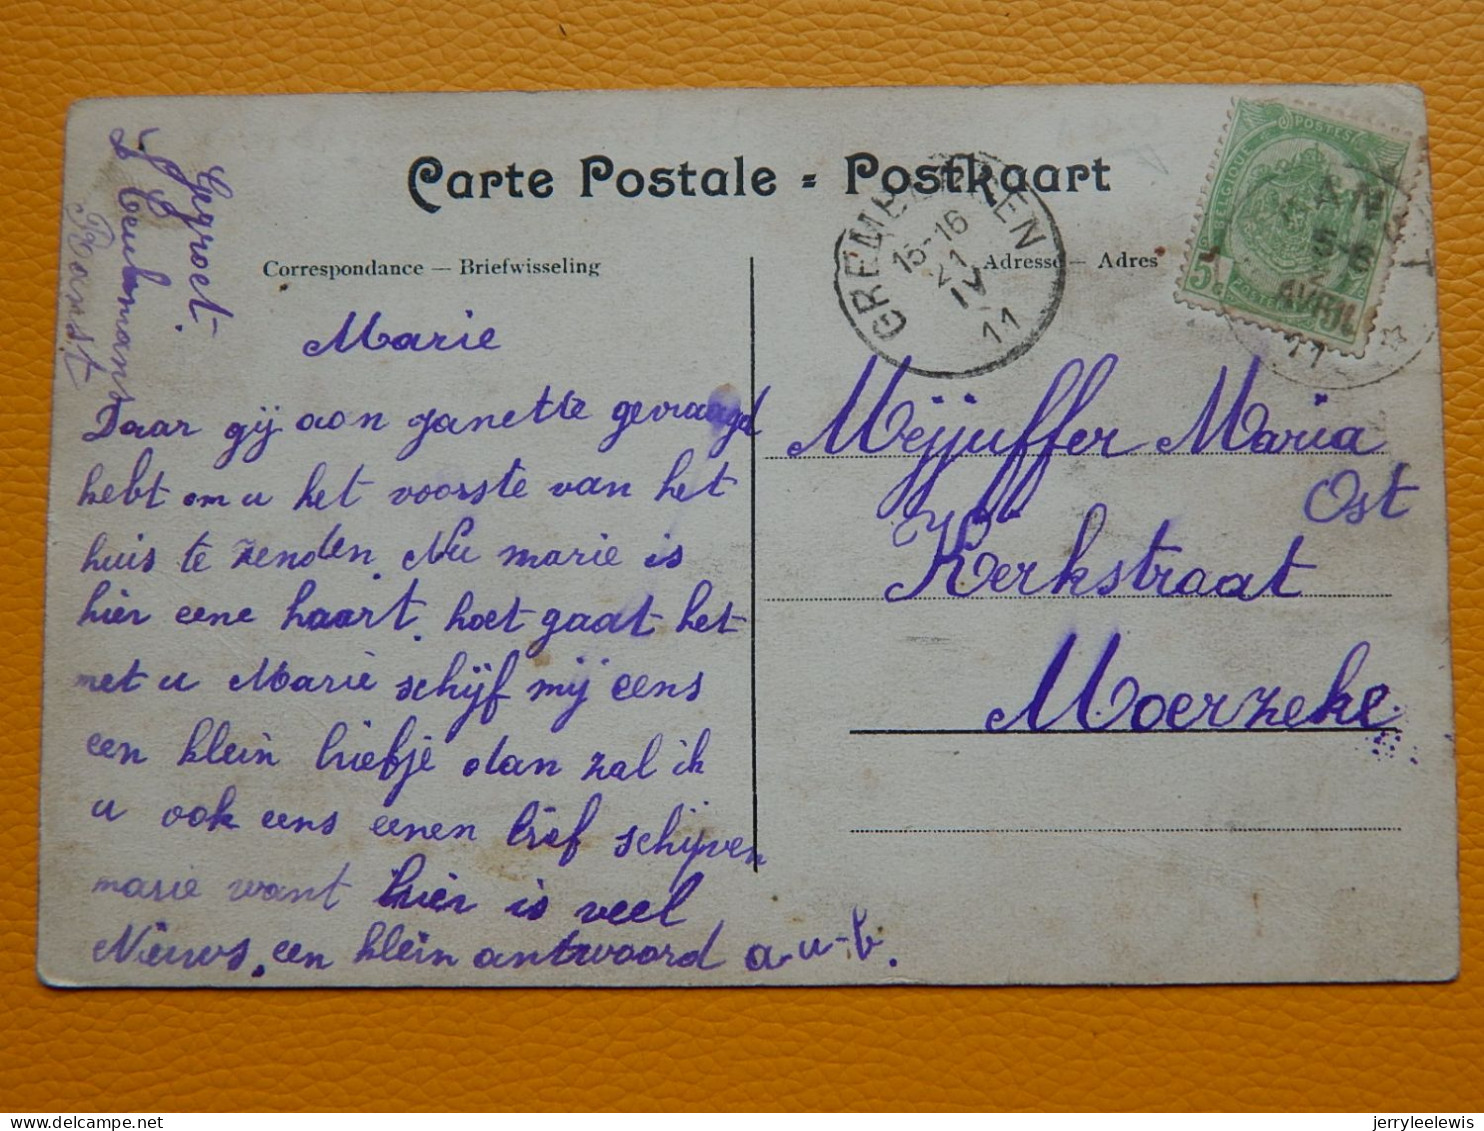 Carte Postale = Postkaart
Correspondance — Briefwisseling
Adresse — Adres
GREMBERGEN
15-16
21
IV
11
BELGIQUE
POSTES
5
5-6
AVRIL
11
Gegroet.
Ceulemans
Ranst
Marie
Daar gij aan janette gevraagd
hebt om u het voorste van het
huis te zenden. Nu marie is
hier eene kaart. hoet gaat het
met u Marie schijf mij eens
een klein briefje dan zal ik
u ook eens eenen brief schijven
marie want hier is veel
Nieuws. een klein antwoord a-u-b.
Mejjuffer Maria
Ost
Kerkstraat
Moerzeke
jerryleelewis